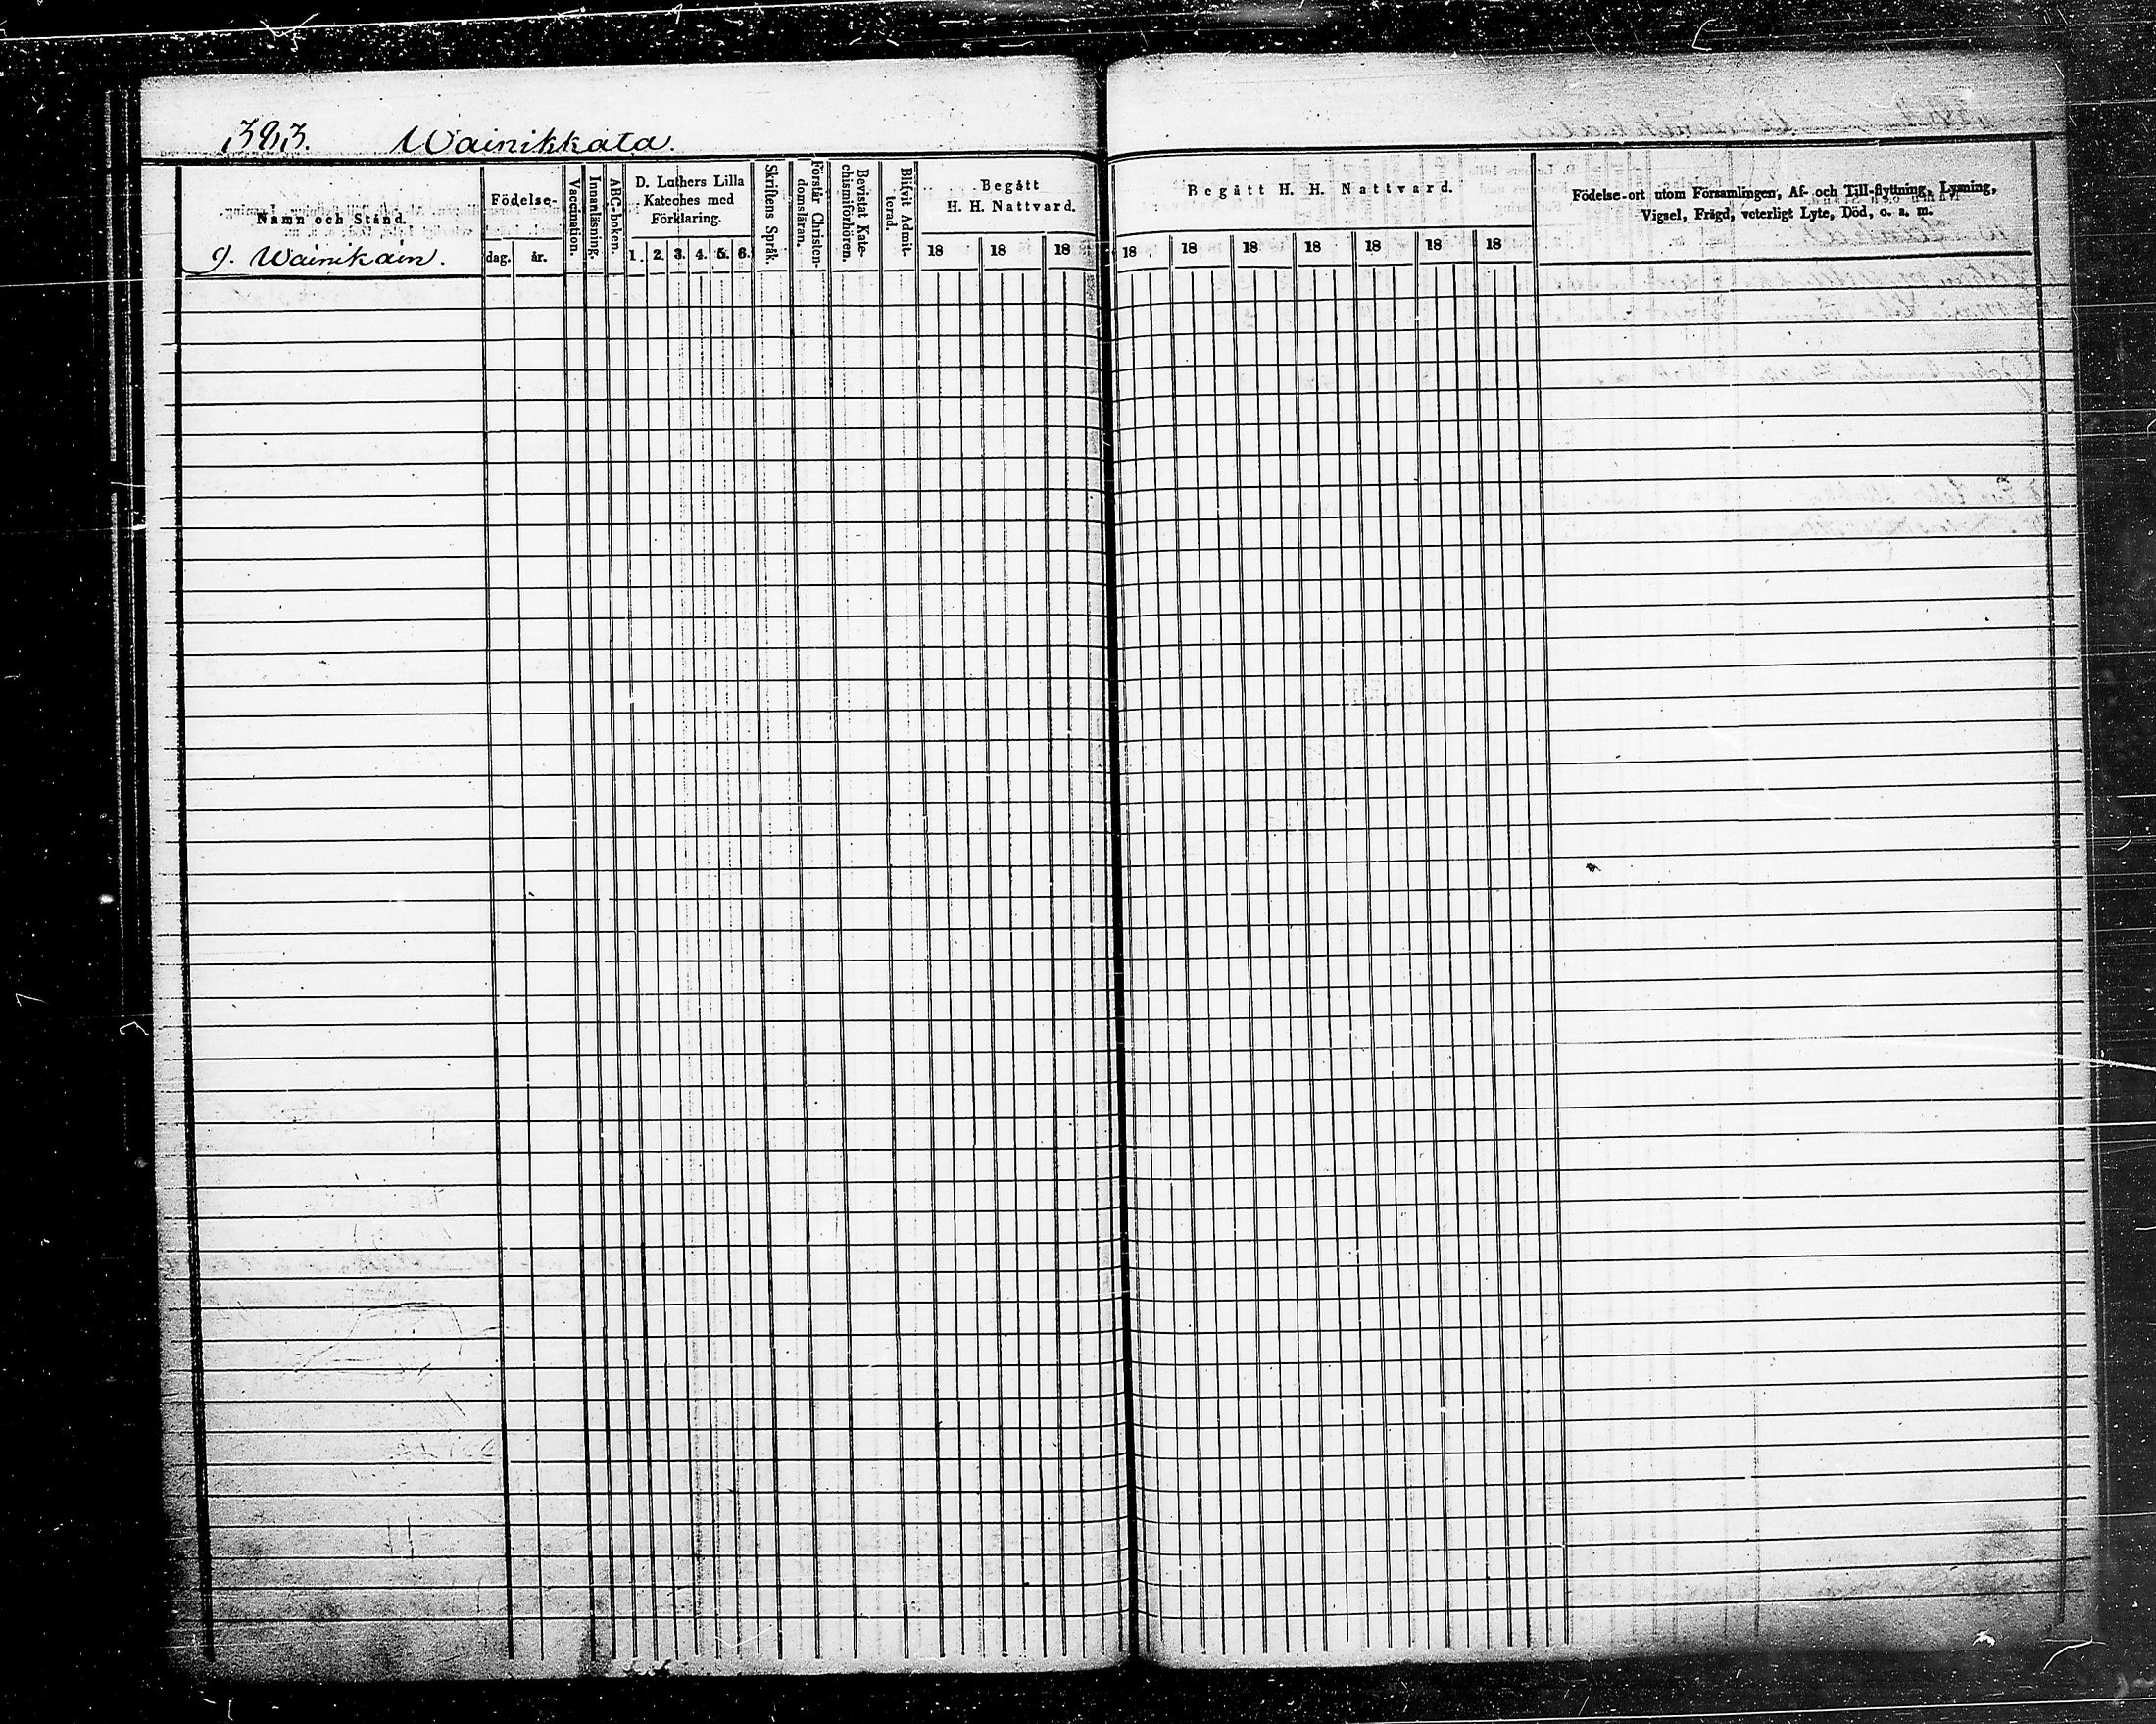 383. Wainikkala.
Namn och Stånd.
Födelse-
dag. år.
Vaccination.
Innanläsning.
ABC-boken.
D. Luthers Lilla
Kateches med
Förklaring.
1. 2. 3. 4. 5. 6.
Skriftens Språk.
Förstår Christen-
domsläran.
Bevistat Kate-
chismiförhören.
Blifvit Admit-
terad.
Begått
H. H. Nattvard.
18 18 18
9. Wainikain.
Begått H. H. Nattvard.
18 18 18 18 18 18 18
Födelse-ort utom Församlingen, Af- och Till-flyttning, Lysning,
Vigsel, Frägd, veterligt Lyte, Död, o. s. m.